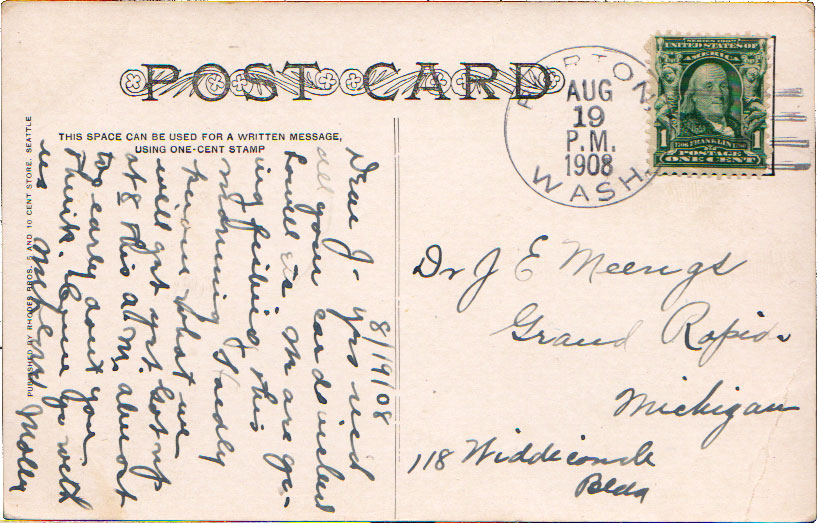 POST CARD
THIS SPACE CAN BE USED FOR A WRITTEN MESSAGE,
USING ONE-CENT STAMP
PUBLISHED BY RHODES BROS. 5 AND 10 CENT STORE, SEATTLE
AUG
19
P.M.
1908
WASH.
SERIES 1902
UNITED STATES OF
AMERICA
1 FRANKLIN 1
POSTAGE
ONE CENT
8/19/08
Dear J-
all your cards
Lowell M are go-
ing this
morning Hardly
know what we
will get yet. Got up
at 8 this a.m. almost
too early don't you
think. Come go with
us Molly
Dr J E Meengs
Grand Rapids
Michigan
118 Widdicomb
Bldg